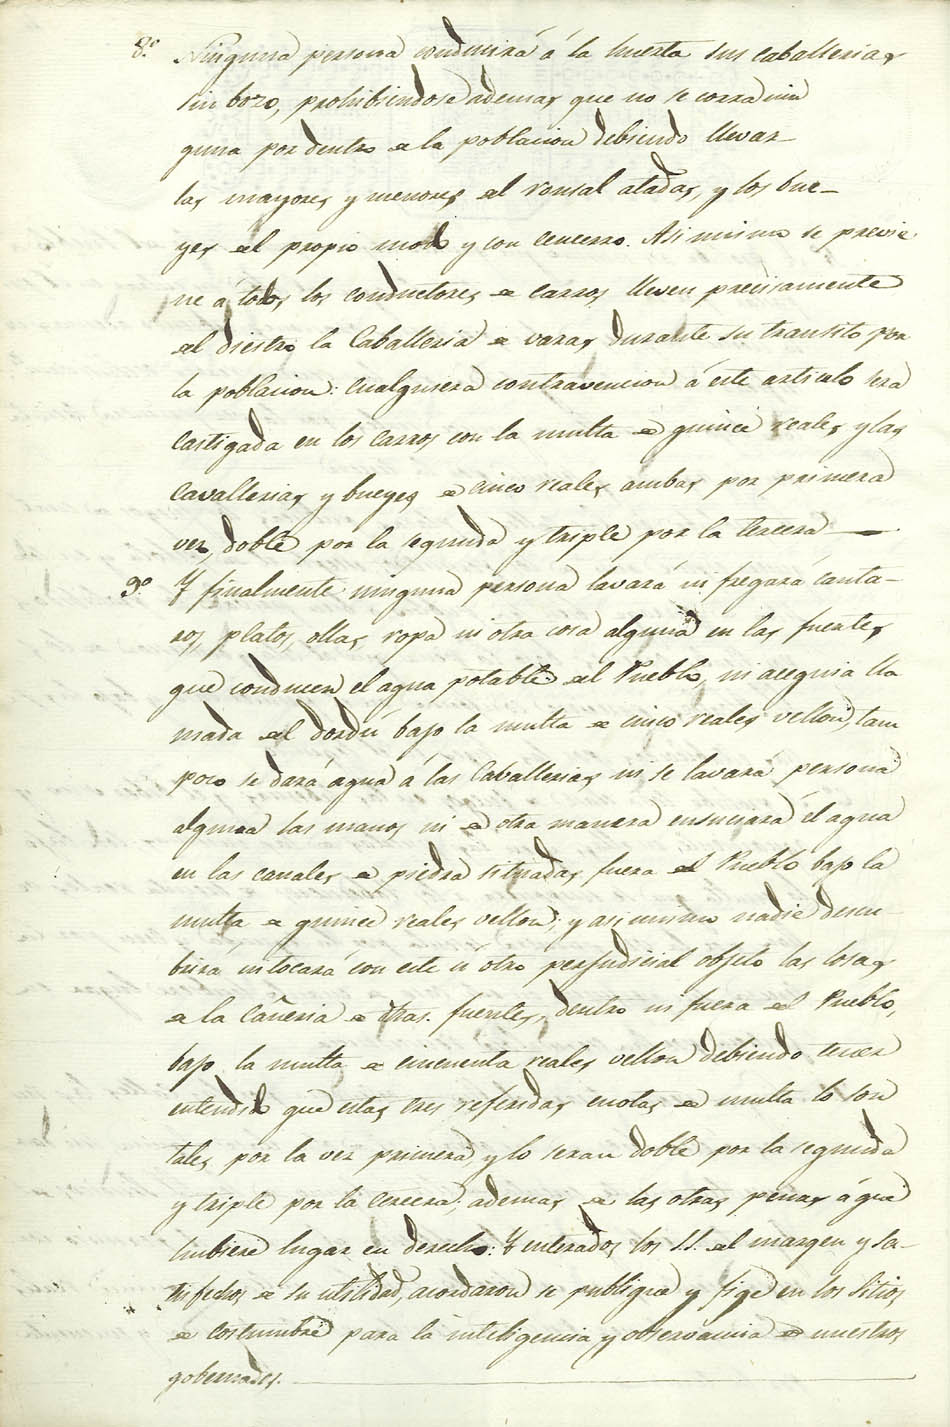 8.º Ninguna persona conducirá á la huerta sus caballerias
sin bozo, prohibiendose ademas que no se corra nin
guna por dentro de la poblacion debiendo llevar-
las mayores y menores del ronsal atadas, y los bue-
yes del propio modo y con cencerro. Asi mismo se previe
ne á todos los conductores de carros lleven precisamente
del diestro la Caballeria de varas durante su transito por
la poblacion: cualquiera contravencion á este articulo sera
castigada en los carros con la multa de quince reales y las
Cavallerias y bueyes de cinco reales ambas por primera
vez, doble por la segunda y triple por la tercera
9.º Y finalmente ninguna persona lavará ni fregará canta-
ros, platos, ollas, ropa ni otra cosa alguna en las fuentes
que conducen el agua potable del Pueblo, ni acequia lla
mada del bajo la multa de cinco reales vellon, tam
poco se dará agua á las Caballerias ni se lavará persona
alguna las manos ni de otra manera ensuciará el agua
en las canales de piedra situadas fuera del Pueblo bajo la
multa de quince reales vellon; y asi mismo nadie descu-
brirá ni tocará con este ú otro perjudicial objeto las losas
de la Cañeria de dhas. fuentes, dentro ni fuera del Pueblo,
bajo la multa de cincuenta reales vellon debiendo tener
entendido que estas tres referidas cuotas de multa lo son
tales por la vez primera, y lo seran doble por la segunda
y triple por la tercera: ademas de las otras penas á que
hubiere lugar en derecho: Y enterados los SS. del margen y sa-
tisfechos de su utilidad, acordaron se publique y fige en los Sitios
de costumbre para la inteligencia y observancia de nuestros
gobernados.